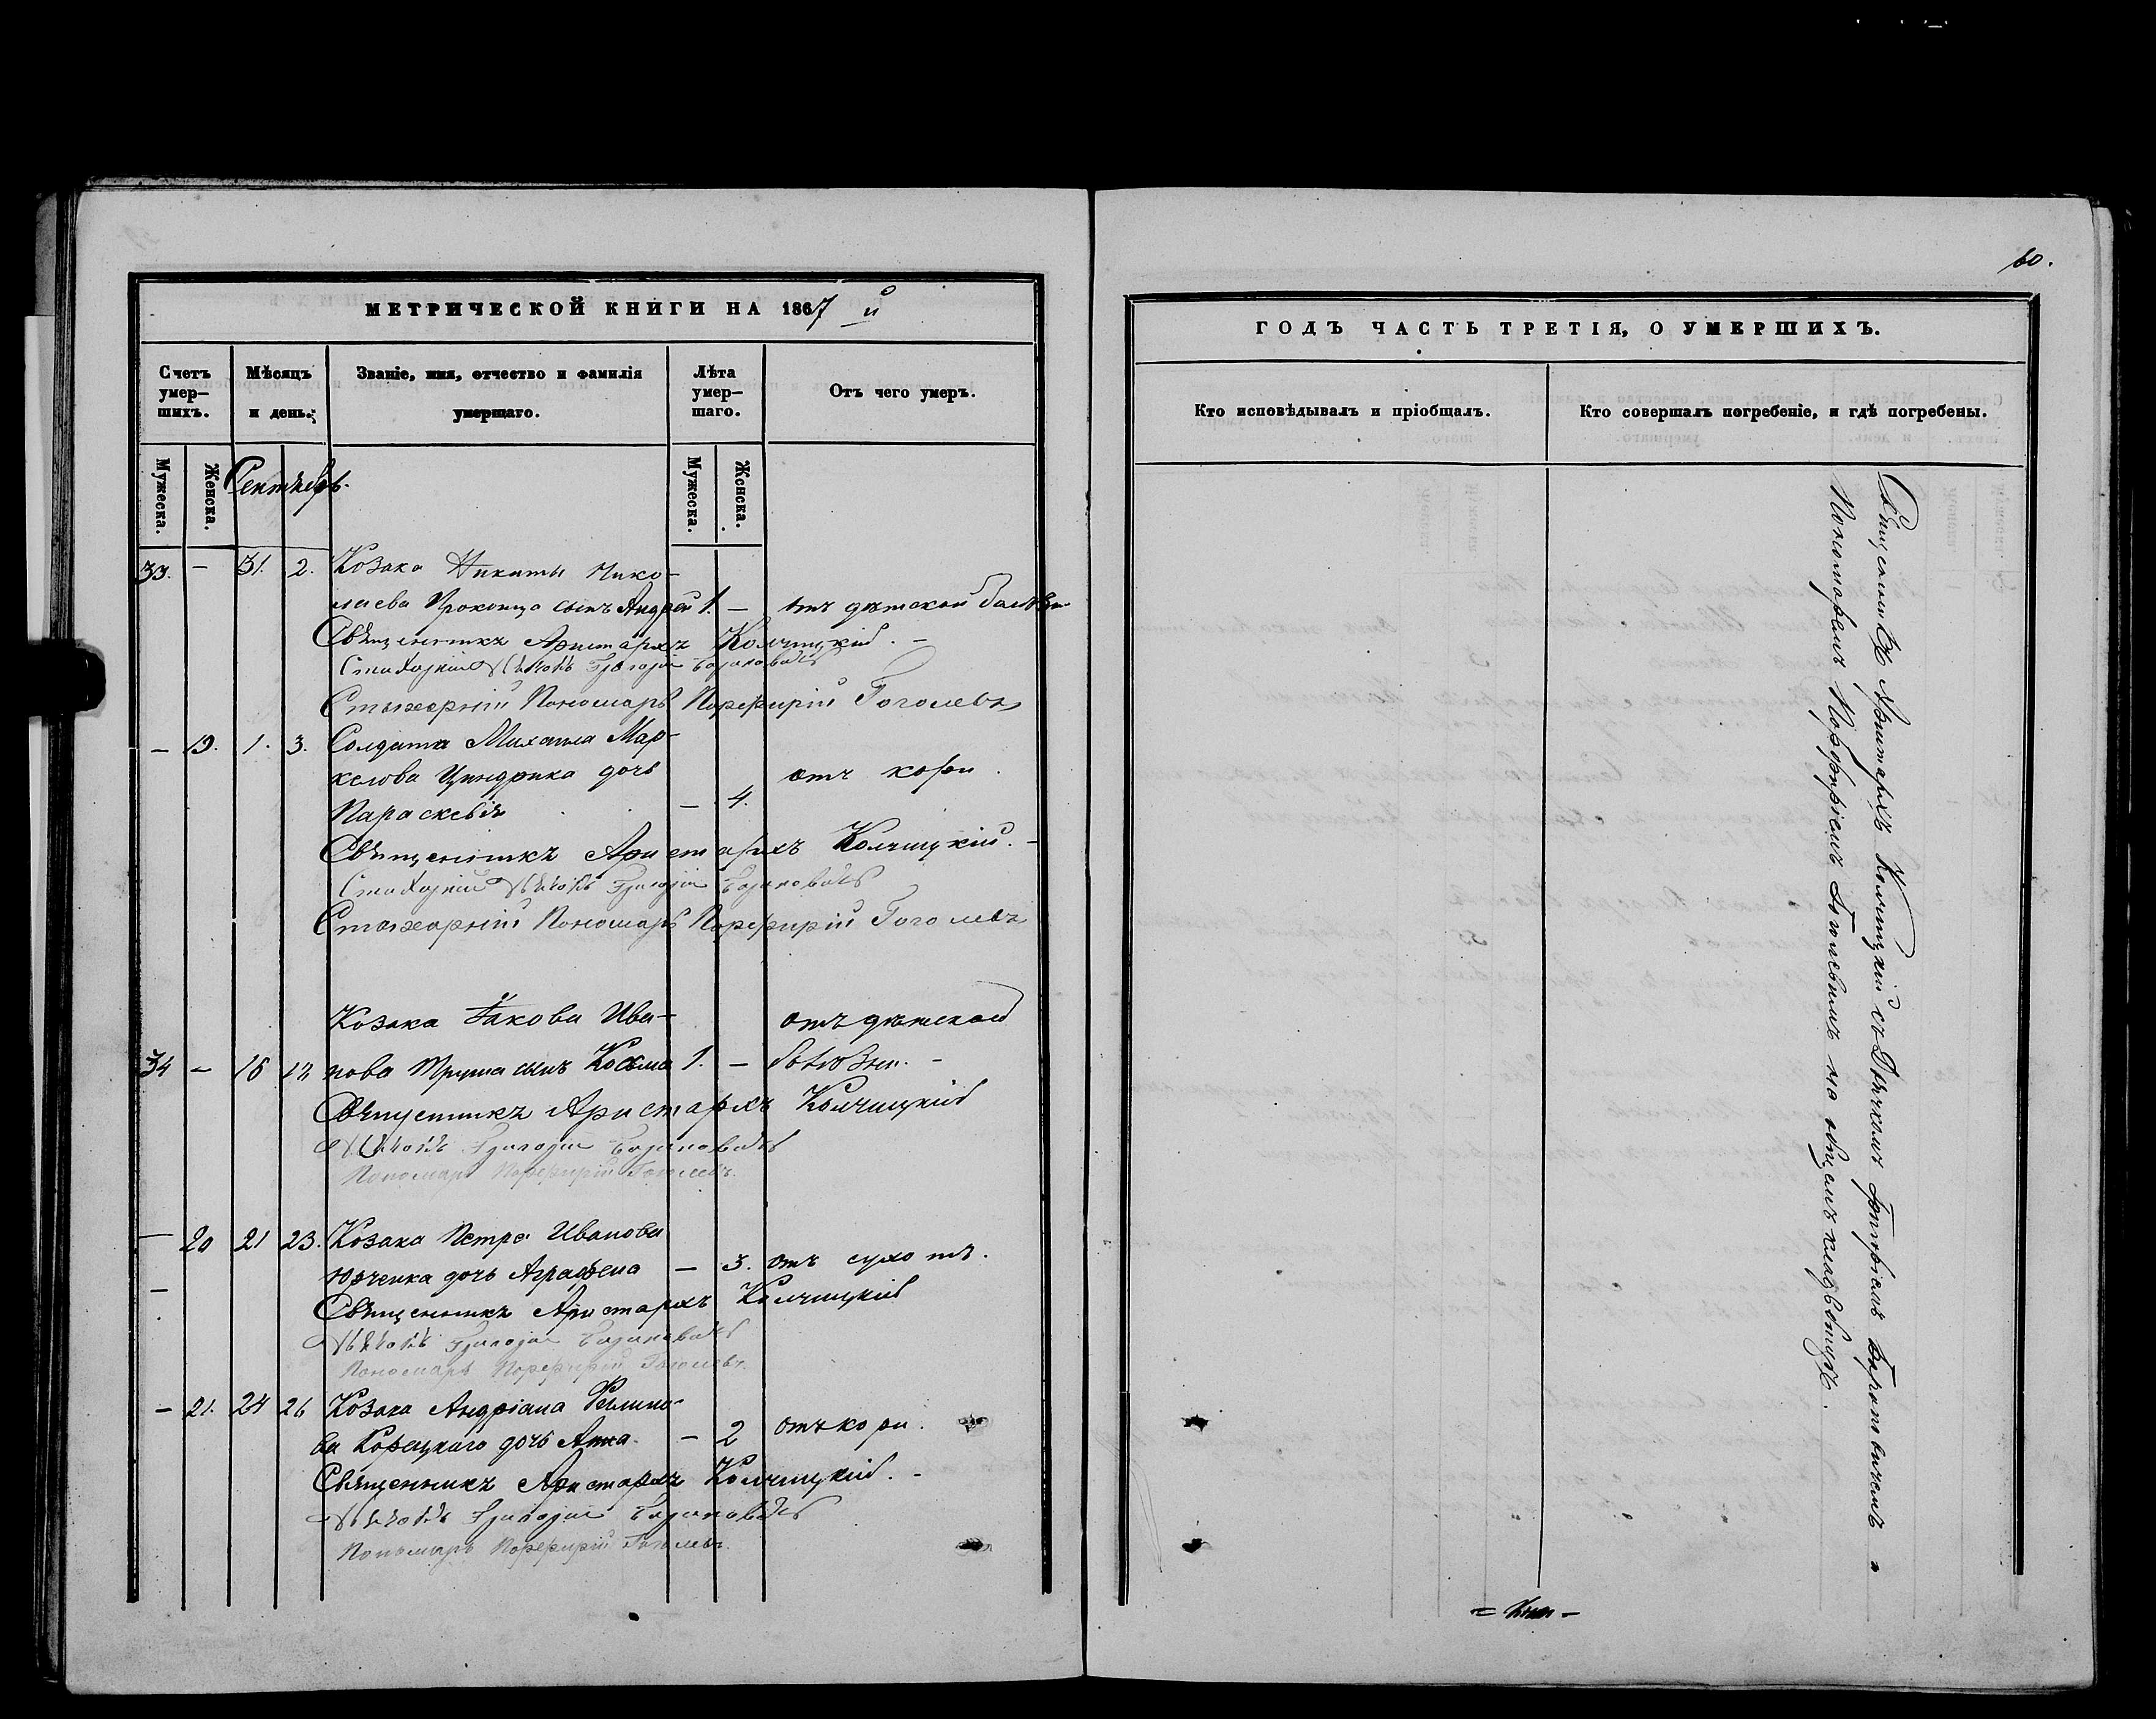 МЕТРИЧЕСКОЙ КНИГИ НА 1867 й
Счетъ умер—шихъ.
Мѣсяцъ и день.
Званіе, имя, отчество и фамилія умершаго.
Лѣта умер—шаго.
Отъ чего умеръ.
Мужеска.
Женска.
Сентябрь.
Мужеска.
Женска.
33. — 31. 2. Козака Никиты Нико-
лаева Прокопца сынъ Андрей 1. — отъ дѣтской болѣзни
Священникъ Аристархъ Колчицкій. —
Стихарній Дьячокъ Григорій
Стихарній Пономарь Порфирій Гоголевъ
— 19. 1. 3. Солдата Михаила Мар-
келова Циндрика дочь отъ кори.
Параскевія — 4.
Священникъ Аристархъ Колчицкій. —
Стихарній Дьячокъ Григорій
Стихарній Пономарь Порфирій Гоголевъ
Козака Іакова Ива- отъ дѣтской
34 — 16 17 нова Труша сынъ Косьма 1. — болѣзни. —
Священникъ Аристархъ Колчицкій
Дьячокъ Григорій
Пономарь Порфирій Гоголевъ.
— 20 21 23. Козака Петра Иванова
Юрченка дочь Аграфена — 3. отъ сухотъ.
Священникъ Аристархъ Колчицкій
Дьячокъ Григорій
Пономарь Порфирій Гоголевъ.
— 21. 24 26 Козака Андріана
ва Корецкаго дочь Анна — 2 отъ кори.
Священникъ Аристархъ Колчицкій. —
Дьячокъ Григорій
Пономарь Порфирій Гоголевъ.
60.
ГОДЪ ЧАСТЬ ТРЕТІЯ, О УМЕРШИХЪ.
Кто исповѣдывалъ и пріобщалъ.
Кто совершалъ погребеніе, и гдѣ погребены.
Священникъ Аристархъ Колчицкій съ Дьячкомъ Григоріемъ и
Пономаремъ Порфиріемъ Гоголевымъ на общемъ кладбищѣ.